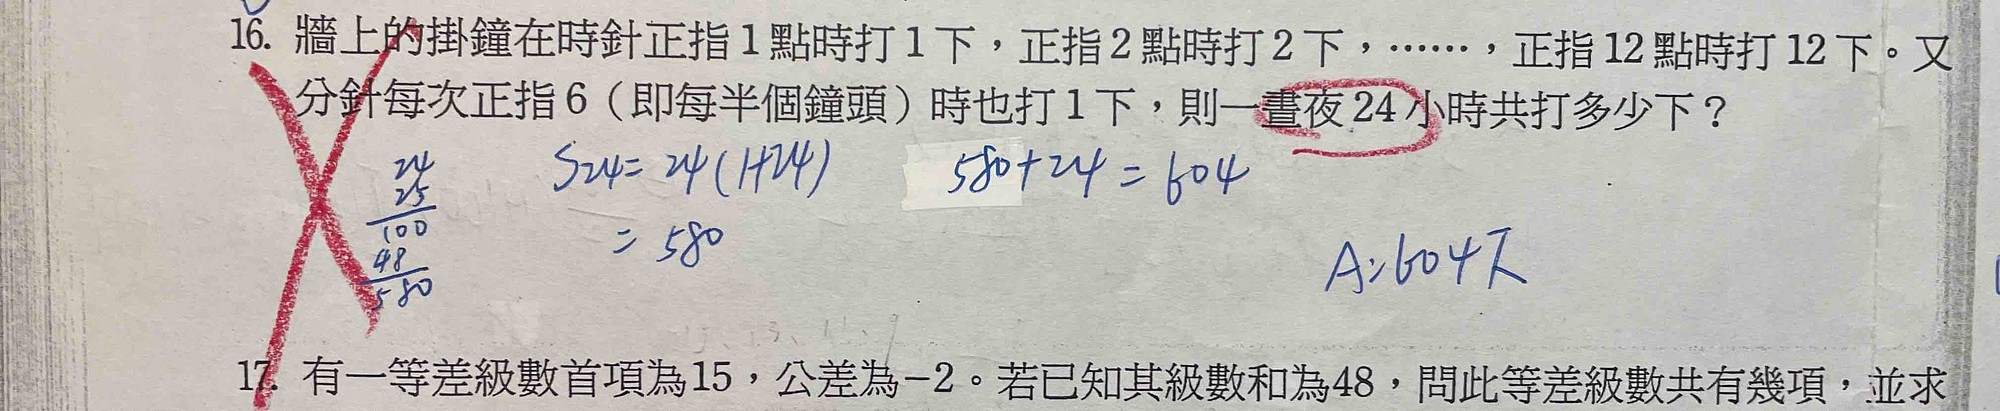 16. 牆上的掛鐘在時針正指1點時打1下，正指2點時打2下，……，正指12點時打12下。又
分針每次正指6（即每半個鐘頭）時也打1下，則一晝夜24小時共打多少下？
24
25
100
48
580
S24=24(1+24)
=580
580+24=604
A:604下
17. 有一等差級數首項為15，公差為-2。若已知其級數和為48，問此等差級數共有幾項，並求